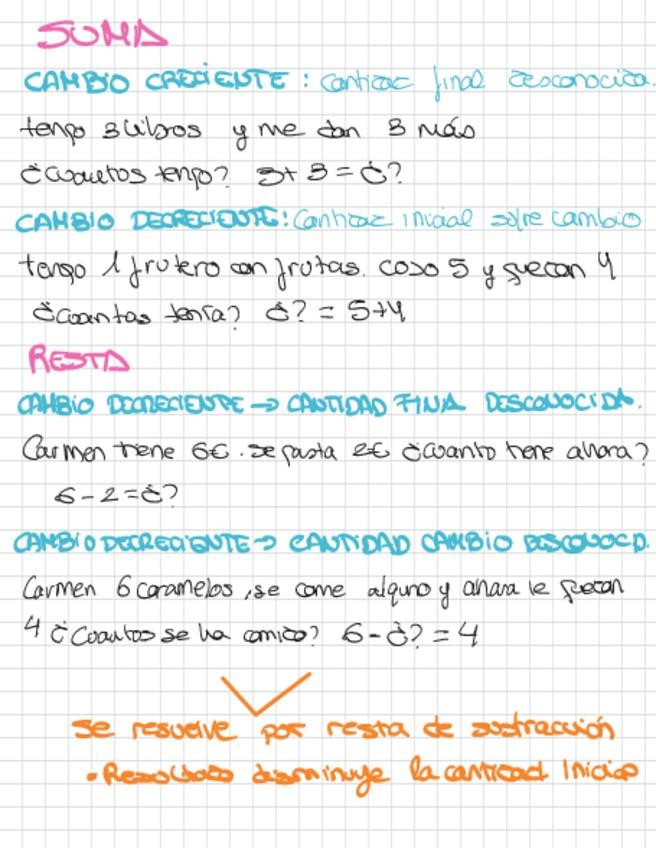 SUMA
CAMBIO CRECIENTE: Cantidad final desconocida.
tengo 3 libros y me dan 3 más
¿Cuantos tengo? 3+3=¿?
CAMBIO DECRECIENTE: Cantidad inicial sobre cambio
tengo 1 frutero con frutas. cojo 5 y quedan 4
¿Cuantas tenía? ¿? = 5+4
RESTA
CAMBIO DECRECIENTE → CANTIDAD FINAL DESCONOCIDA.
Carmen tiene 6€. se gasta 2€ ¿Cuanto tiene ahora?
6-2=¿?
CAMBIO DECRECIENTE → CANTIDAD CAMBIO DESCONOCD.
Carmen 6 caramelos, se come alguno y ahora le quedan
4 ¿Cuantos se ha comido? 6-¿?=4
Se resuelve por resta de sustracción
• Resultado disminuye la cantidad Inicial